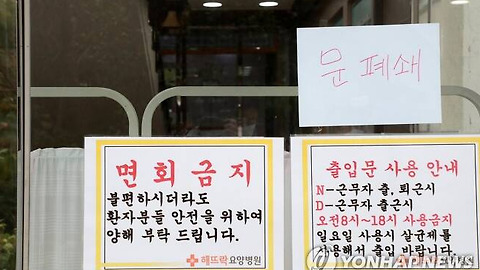 문 폐쇄
면회금지
불편하시더라도
환자분들 안전을 위하여
양해 부탁 드립니다.
해뜨락요양병원
출입문 사용 안내
N-근무자 출, 퇴근시
D-근무자 출근시
오전8시~18시 사용금지
일요일 사용시 살균제를
해서 출입 바랍니다.
YONHAP NEWS
YONHAP NEWS